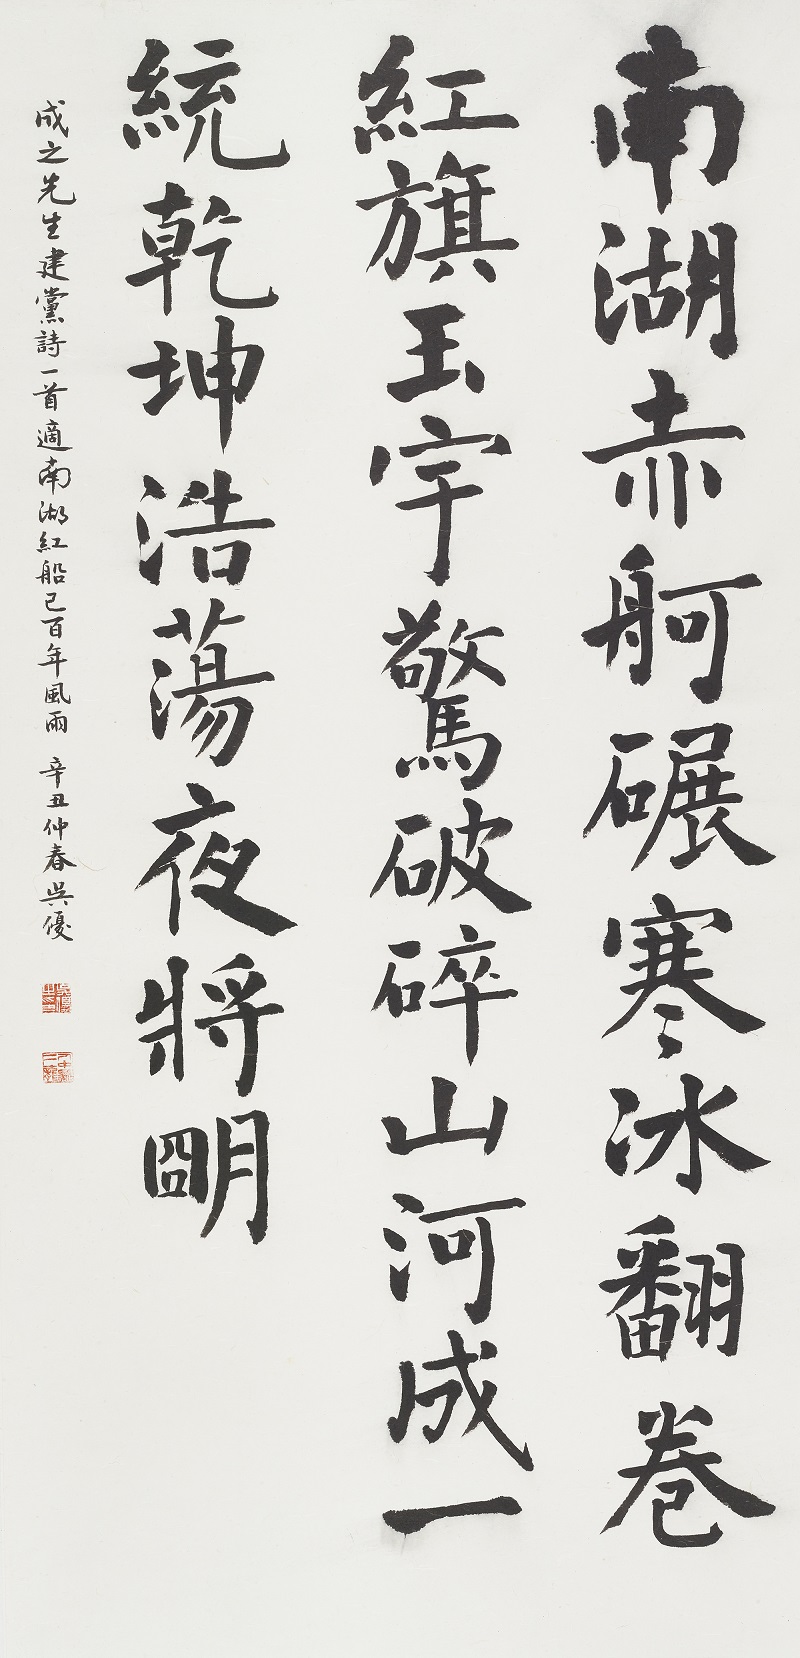 南湖赤舸碾寒冰翻卷
紅旗玉宇驚破碎山河成一
統乾坤浩蕩夜將朙
成之先生建黨詩一首適南湖紅船已百年風雨 辛丑仲春吳優